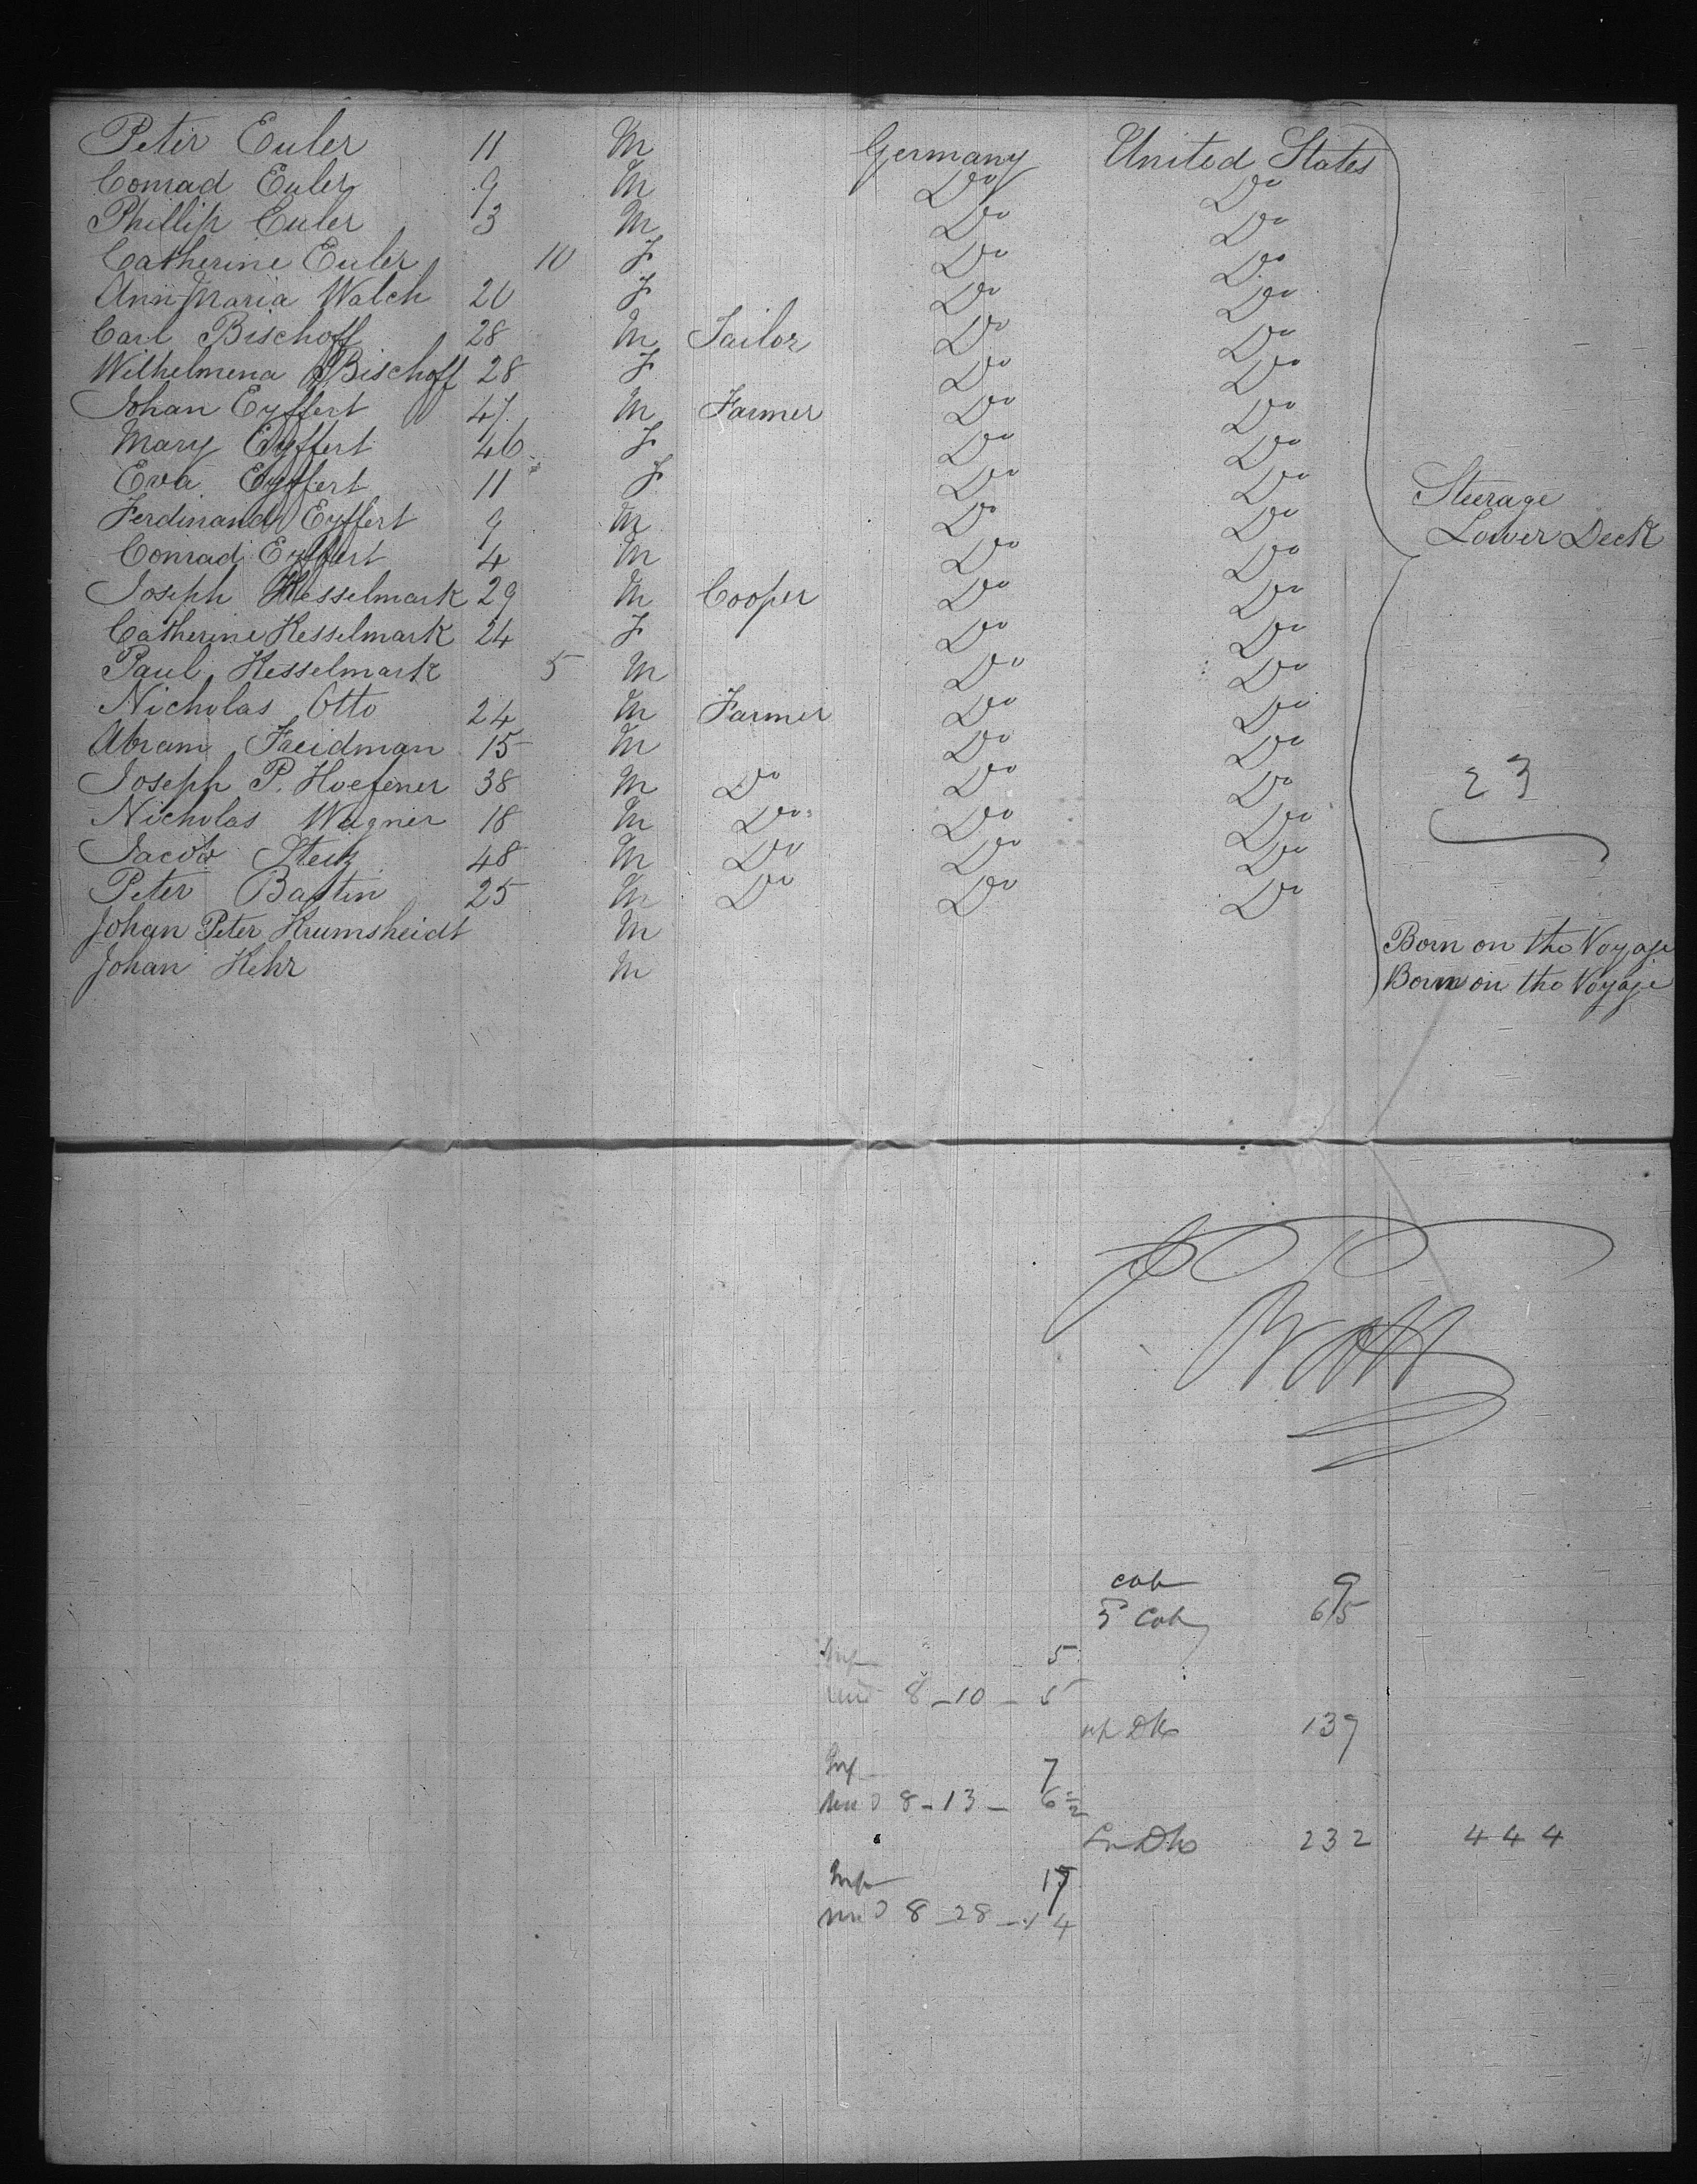 Peter Euler 11 M Germany United States
Conrad Euler 9 M Do Do
Phillip Euler 3 M Do Do
Catherine Euler 10 F Do Do
Ann Maria Walch 20 F Do Do
Carl Bischoff 28 M Tailor Do Do
Wilhelmena Bischoff 28 F Do Do
Johan Eyffert 47 M Farmer Do Do
Mary Eyffert 46 F Do Do
Eva Eyffert 11 F Do Do
Steerage
Ferdinand Eyffert 9 M Do Do
Lower Deck
Conrad Eyffert 4 M Do Do
Joseph Kesselmark 29 M Cooper Do Do
Catherine Kesselmark 24 F Do Do
Paul Kesselmark 5 M Do Do
Nicholas Otto 24 M Farmer Do Do
Abram Freidman 15 M Do Do
Joseph P. Hoefener 38 M Do Do Do 23
Nicholas Wagner 18 M Do Do Do
Jacob Steitz 48 M Do Do Do
Peter Bastin 25 M Do Do Do
Johan Peter Krumsheidt M Born on the Voyage
Johan Kehr M Born on the Voyage
cab 9
Cab 65
5
8-10-5
up Dk 139
Inf 7
8-13-6
Lr Dk 232 444
Inf
8-28-14